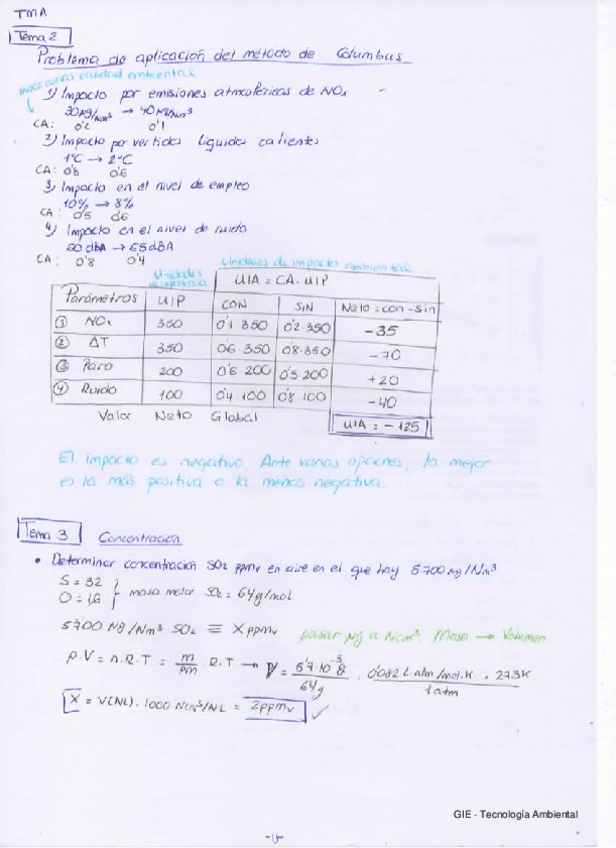 TMA
Tema 2
Problema de aplicación del método de Columbus
1) Impacto por emisiones atmosféricas de NOx
30 µg/Nm³ → 40 µg/Nm³
CA: 0'2 0'1
2) Impacto por vertidos líquidos calientes
1°C → 2°C
CA: 0'8 0'6
3) Impacto en el nivel de empleo
10% → 8%
CA: 0'5 0'6
4) Impacto en el nivel de ruido
60 dBA → 65 dBA
CA: 0'8 0'4
Unidades de impacto ambiental
Unidades
UIA = CA · UIP
Parámetros UIP CON SIN Neto = con - sin
① NOx 350 0'1·350 0'2·350 -35
② ΔT 350 0'6·350 0'8·350 -70
③ Paro 200 0'6·200 0'5·200 +20
④ Ruido 100 0'4·100 0'8·100 -40
Valor Neto Global UIA = -125
El impacto es negativo. Ante varias opciones, la mejor
es la más positiva o la menos negativa.
Tema 3 Concentración
• Determinar concentración SO2 ppmv en aire en el que hay 5700 µg/Nm³
S = 32
O = 16 } masa molar SO2 = 64 g/mol
5700 µg/Nm³ SO2 ≡ X ppmv pasar µg a Ncm³. Masa → Volumen
P.V = n.R.T = m/PM . R.T → V = 5'7·10⁻³ g / 64g . 0'082 L.atm/mol.K . 273K / 1 atm
X = V(NL) . 1000 Ncm³/NL = 2ppmv ✓
GIE - Tecnología Ambiental